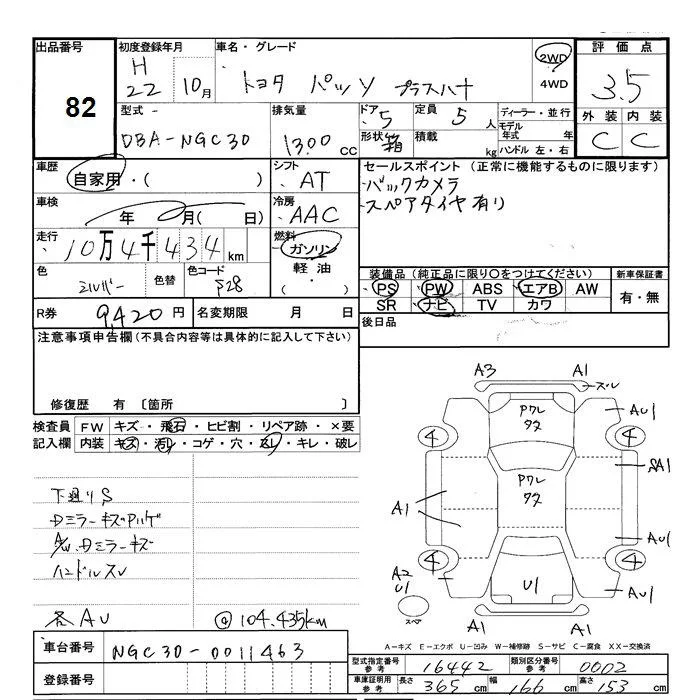 出品番号
82
初度登録年月
H 22 10月
車名・グレード
トヨタ パッソ プラスハナ
2WD
4WD
評価点
3.5
外装 内装
C C
型式
DBA-NGC30
排気量
1300 CC
ドア 5
形状 箱
定員 5 人
積載 kg
ディーラー・並行
モデル年式 年
ハンドル 左・右
車歴
自家用・( )
シフト
AT
セールスポイント (正常に機能するものに限ります)
・バックカメラ
・スペアタイヤ有り
車検
年 月( 日)
冷房
AAC
走行
10万4千434km
燃料
ガソリン
軽油・( )
色
シルバー
色替
色コード
S28
装備品(純正品に限り○をつけてください)
PS PW ABS エアB AW
SR ナビ TV カワ
新車保証書
有・無
R券 9,420円
名変期限 月 日
後日品
注意事項申告欄(不具合内容等は具体的に記入して下さい)
修復歴 有 〔箇所 〕
検査員記入欄
FW キズ・飛石・ヒビ割・リペア跡・×要
内装 キズ・汚レ・コゲ・穴・スレ・キレ・破レ
下廻りS
ハンドルスレ
各AU
@ 104.435km
A3 A1
スレ
AU1
4 4
SA1
A1
AU1
4 4
A2 U1
U1
AU1
スペア
A1
A-キズ E-エクボ U-凹み W-補修跡 S-サビ C-腐食 XX-交換済
車台番号 NGC30-0011463
登録番号
型式指定番号 参考 16442
類別区分番号 参考 0002
車庫証明用 参考 長さ 365 cm 幅 166 cm 高さ 153 cm